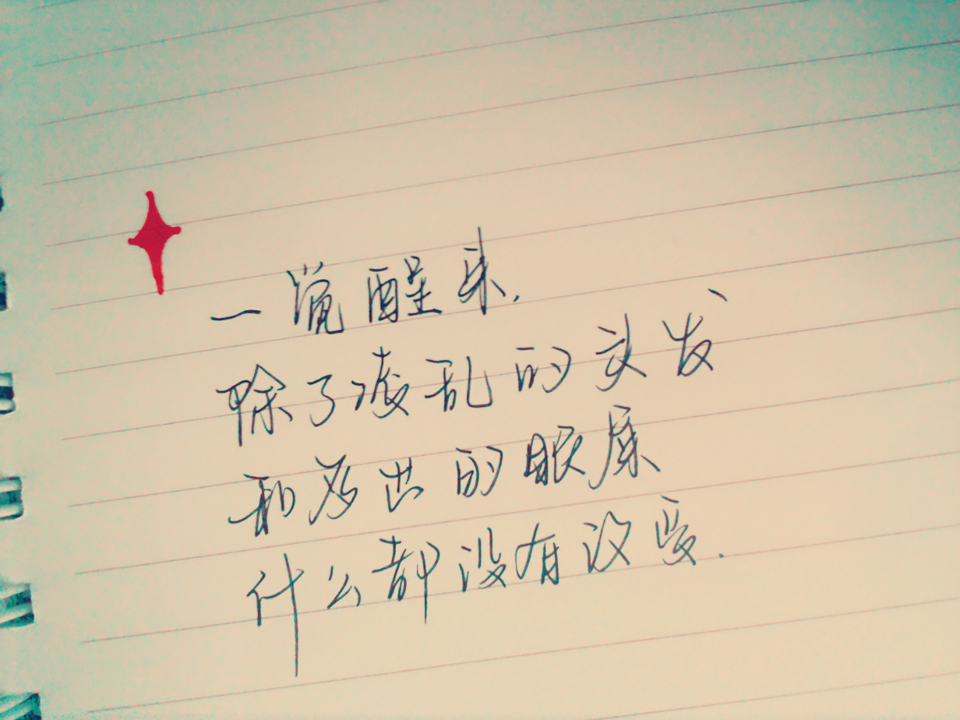 一觉醒来.
除了凌乱的头发
和多出的眼屎
什么都没有改变.